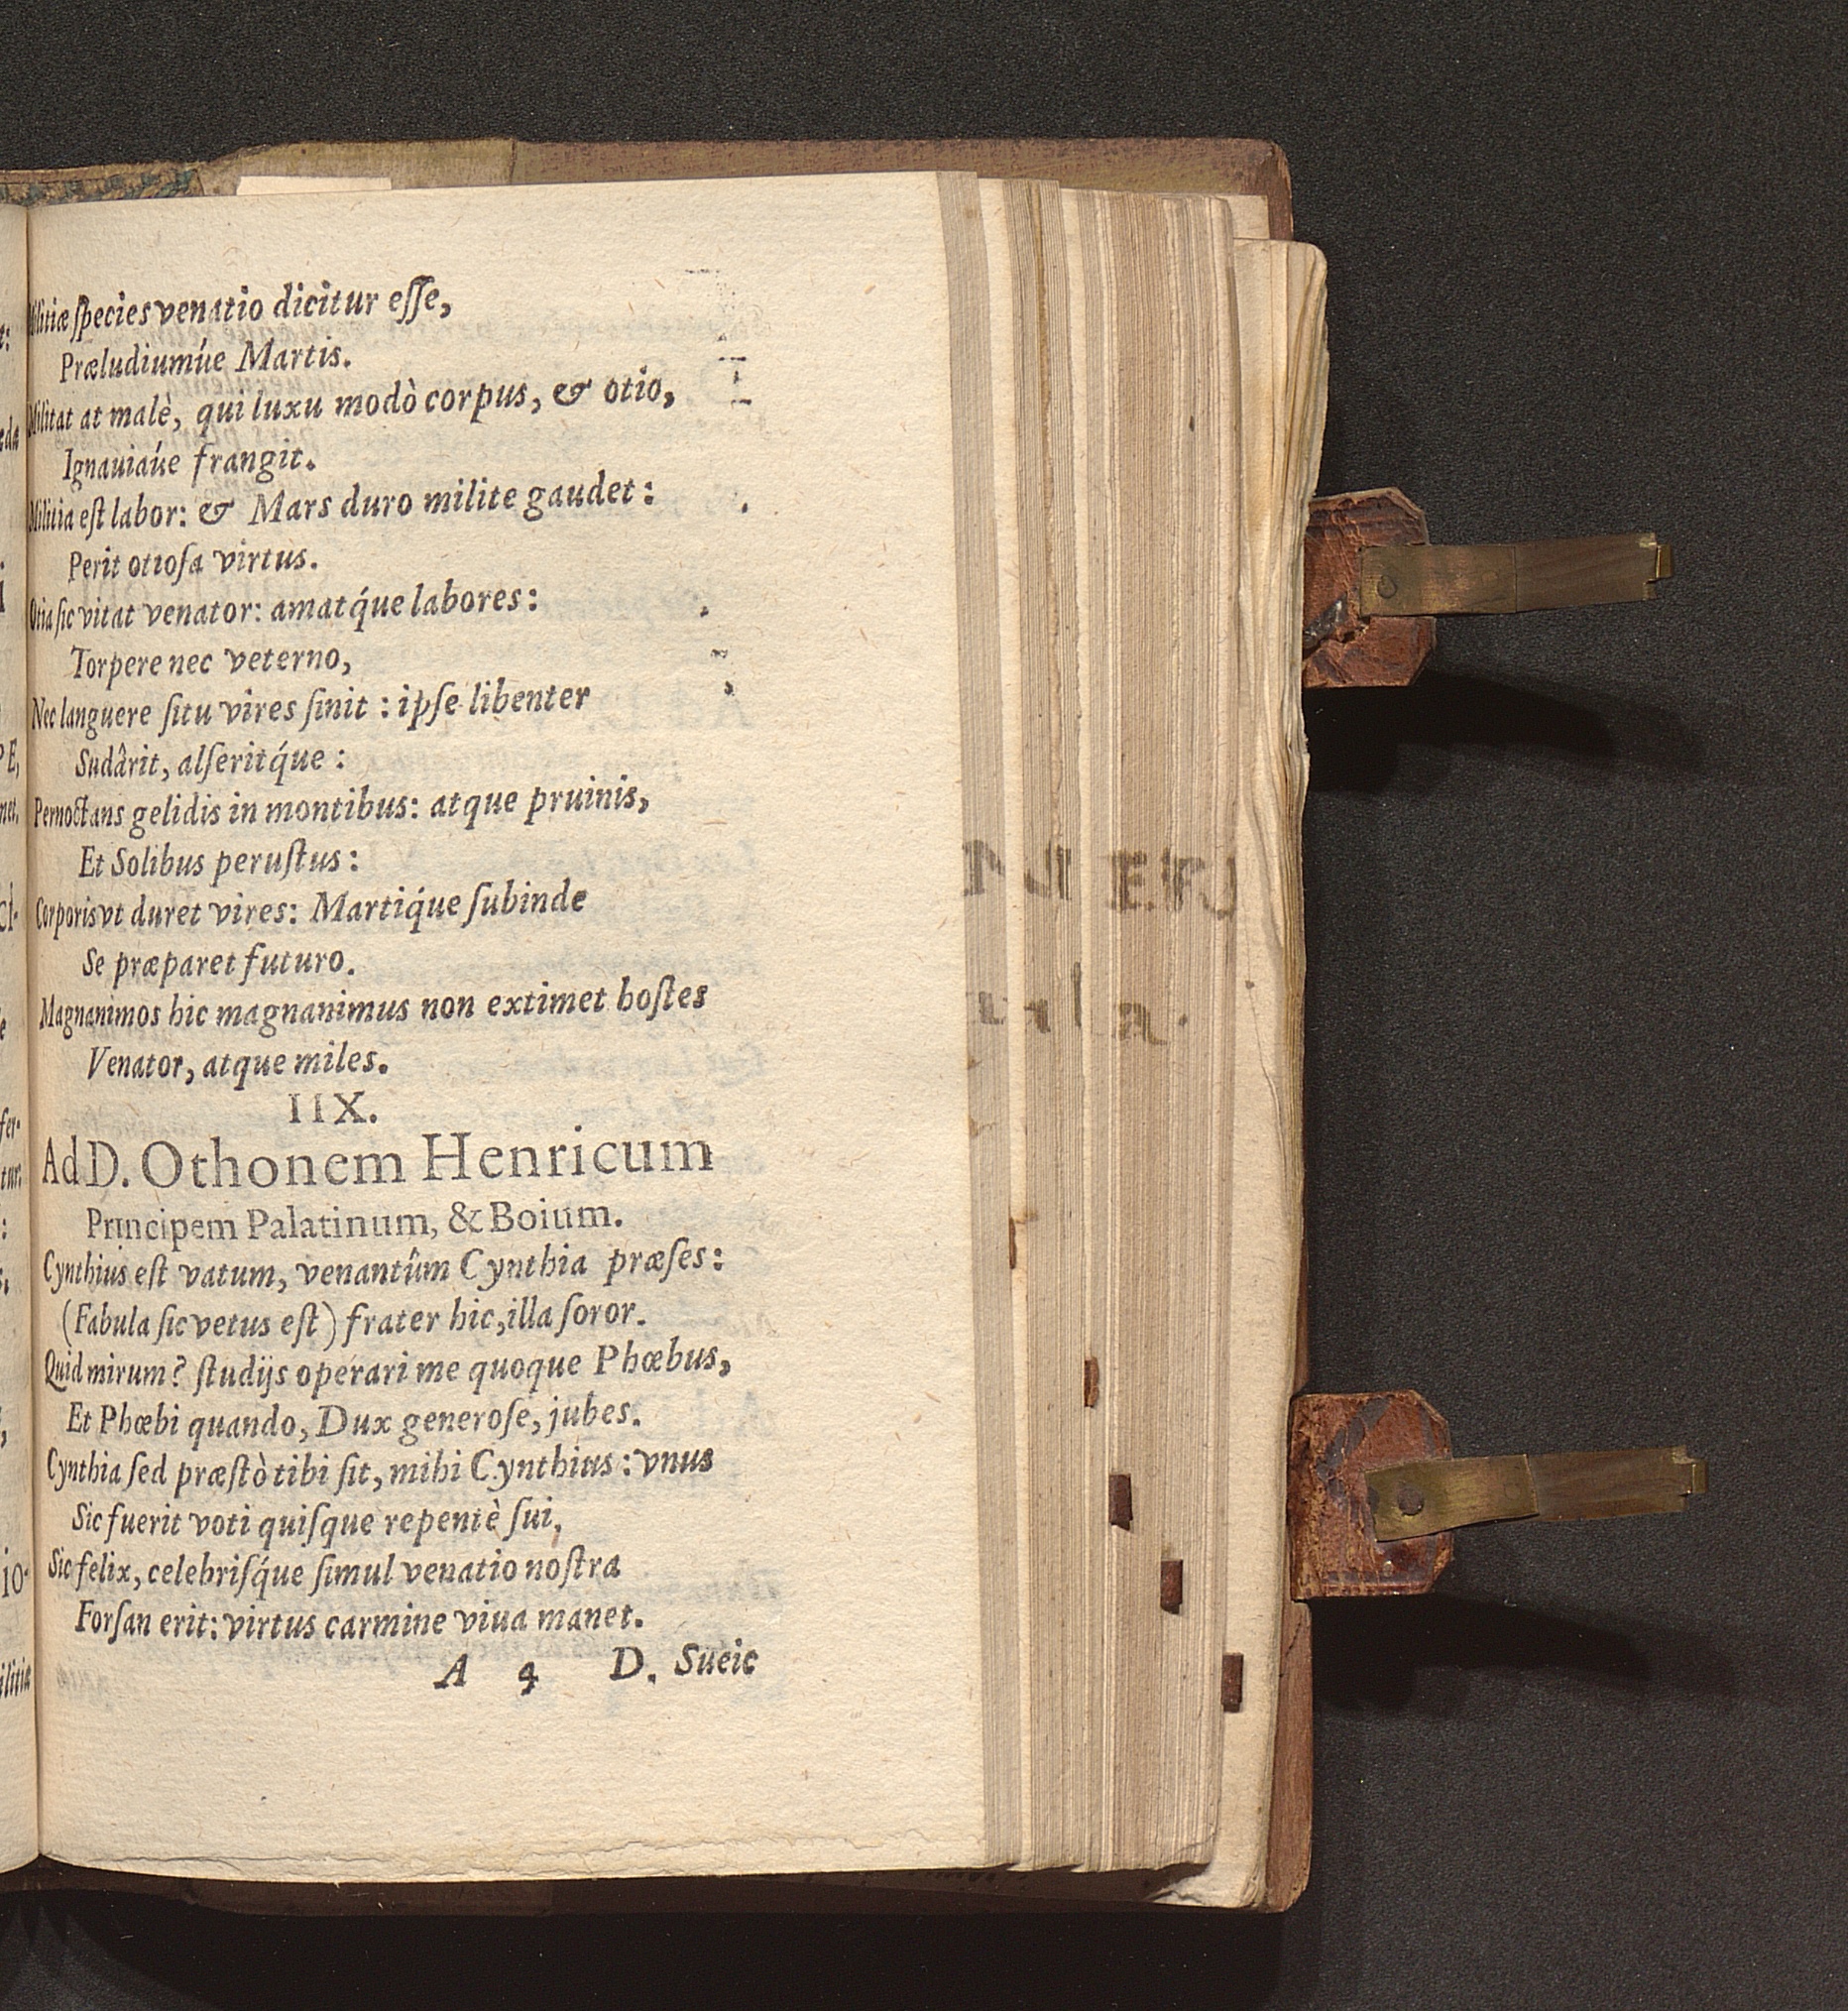 Militiæ ſpecies venatio dicitur eſſe,
Præludiumúe Martis.
Militat at malè, qui luxu modò corpus, & otio,
Ignauiaúe frangit.
Militia eſt labor: & Mars duro milite gaudet:
Perit otioſa virtus.
Otia ſic vitat venator: amatq́ue labores:
Torpere nec veterno,
Nec languere ſitu vires ſinit: ipſe libenter
Sudârit, alſeritq́ue:
Pernoctans gelidis in montibus: atque pruinis,
Et Solibus peruſtus:
Corporis vt duret vires: Martiq́ue ſubinde
Se præparet futuro.
Magnanimos hic magnanimus non extimet hoſtes
Venator, atque miles.
IIX.
Ad D. Othonem Henricum
Principem Palatinum, & Boium.
Cynthius eſt vatum, venantûm Cynthia præſes:
(Fabula ſic vetus eſt) frater hic, illa ſoror.
Quid mirum? ſtudijs operari me quoque Phœbus,
Et Phœbi quando, Dux generoſe, jubes.
Cynthia ſed præſtò tibi ſit, mihi Cynthius: vnus
Sic fuerit voti quiſque repentè ſui,
Sic felix, celebriſq́ue ſimul venatio noſtra
Forſan erit: virtus carmine viua manet.
A 4 D. Sueic